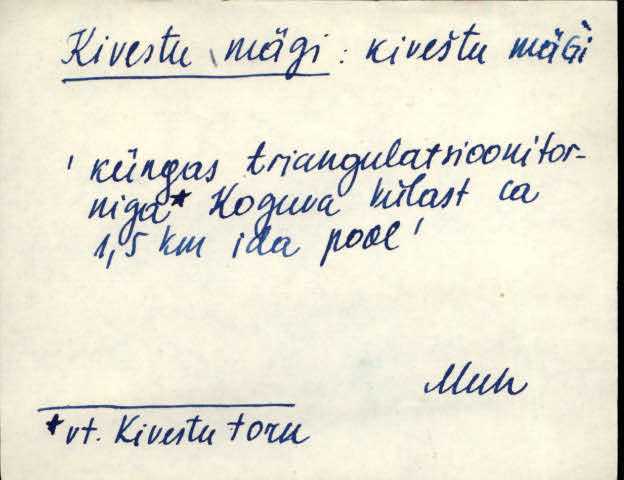 Kivestu mägi : kivèštu mäGi
'küngas triangulatsioonitor-
niga* Koguva külast ca
1,5 km ida pool'
Muh
*vt. Kivestu torn